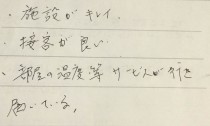 ・施設がキレイ.
・接客が良い
・部屋の温度等サービスが行き
届いている。